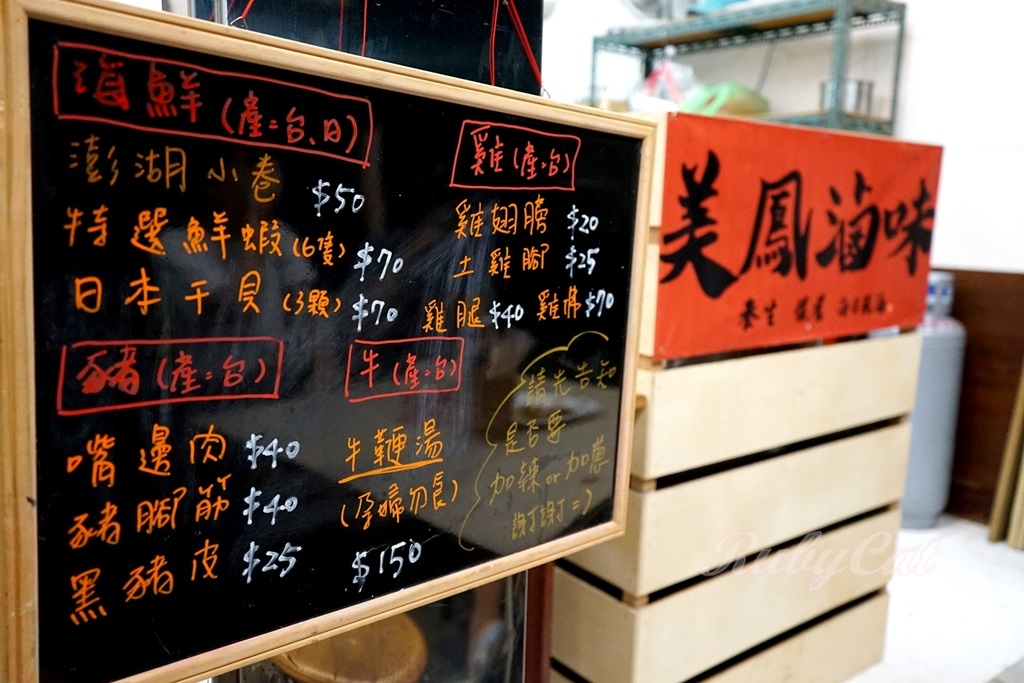 海鮮(產=台、日)
澎湖小卷 $50
特選鮮蝦(6隻) $70
日本干貝(3顆) $70
雞(產=台)
雞翅膀 $20
土雞腳 $25
雞腿 $40 雞佛 $70
豬(產=台)
嘴邊肉 $40
豬腳筋 $40
黑豬皮 $25
牛(產=台)
牛鞭湯
(孕婦勿食)
$150
請先告知
是否要
加辣or加蔥
謝謝=)
美鳳滷味
養生
RubyCat